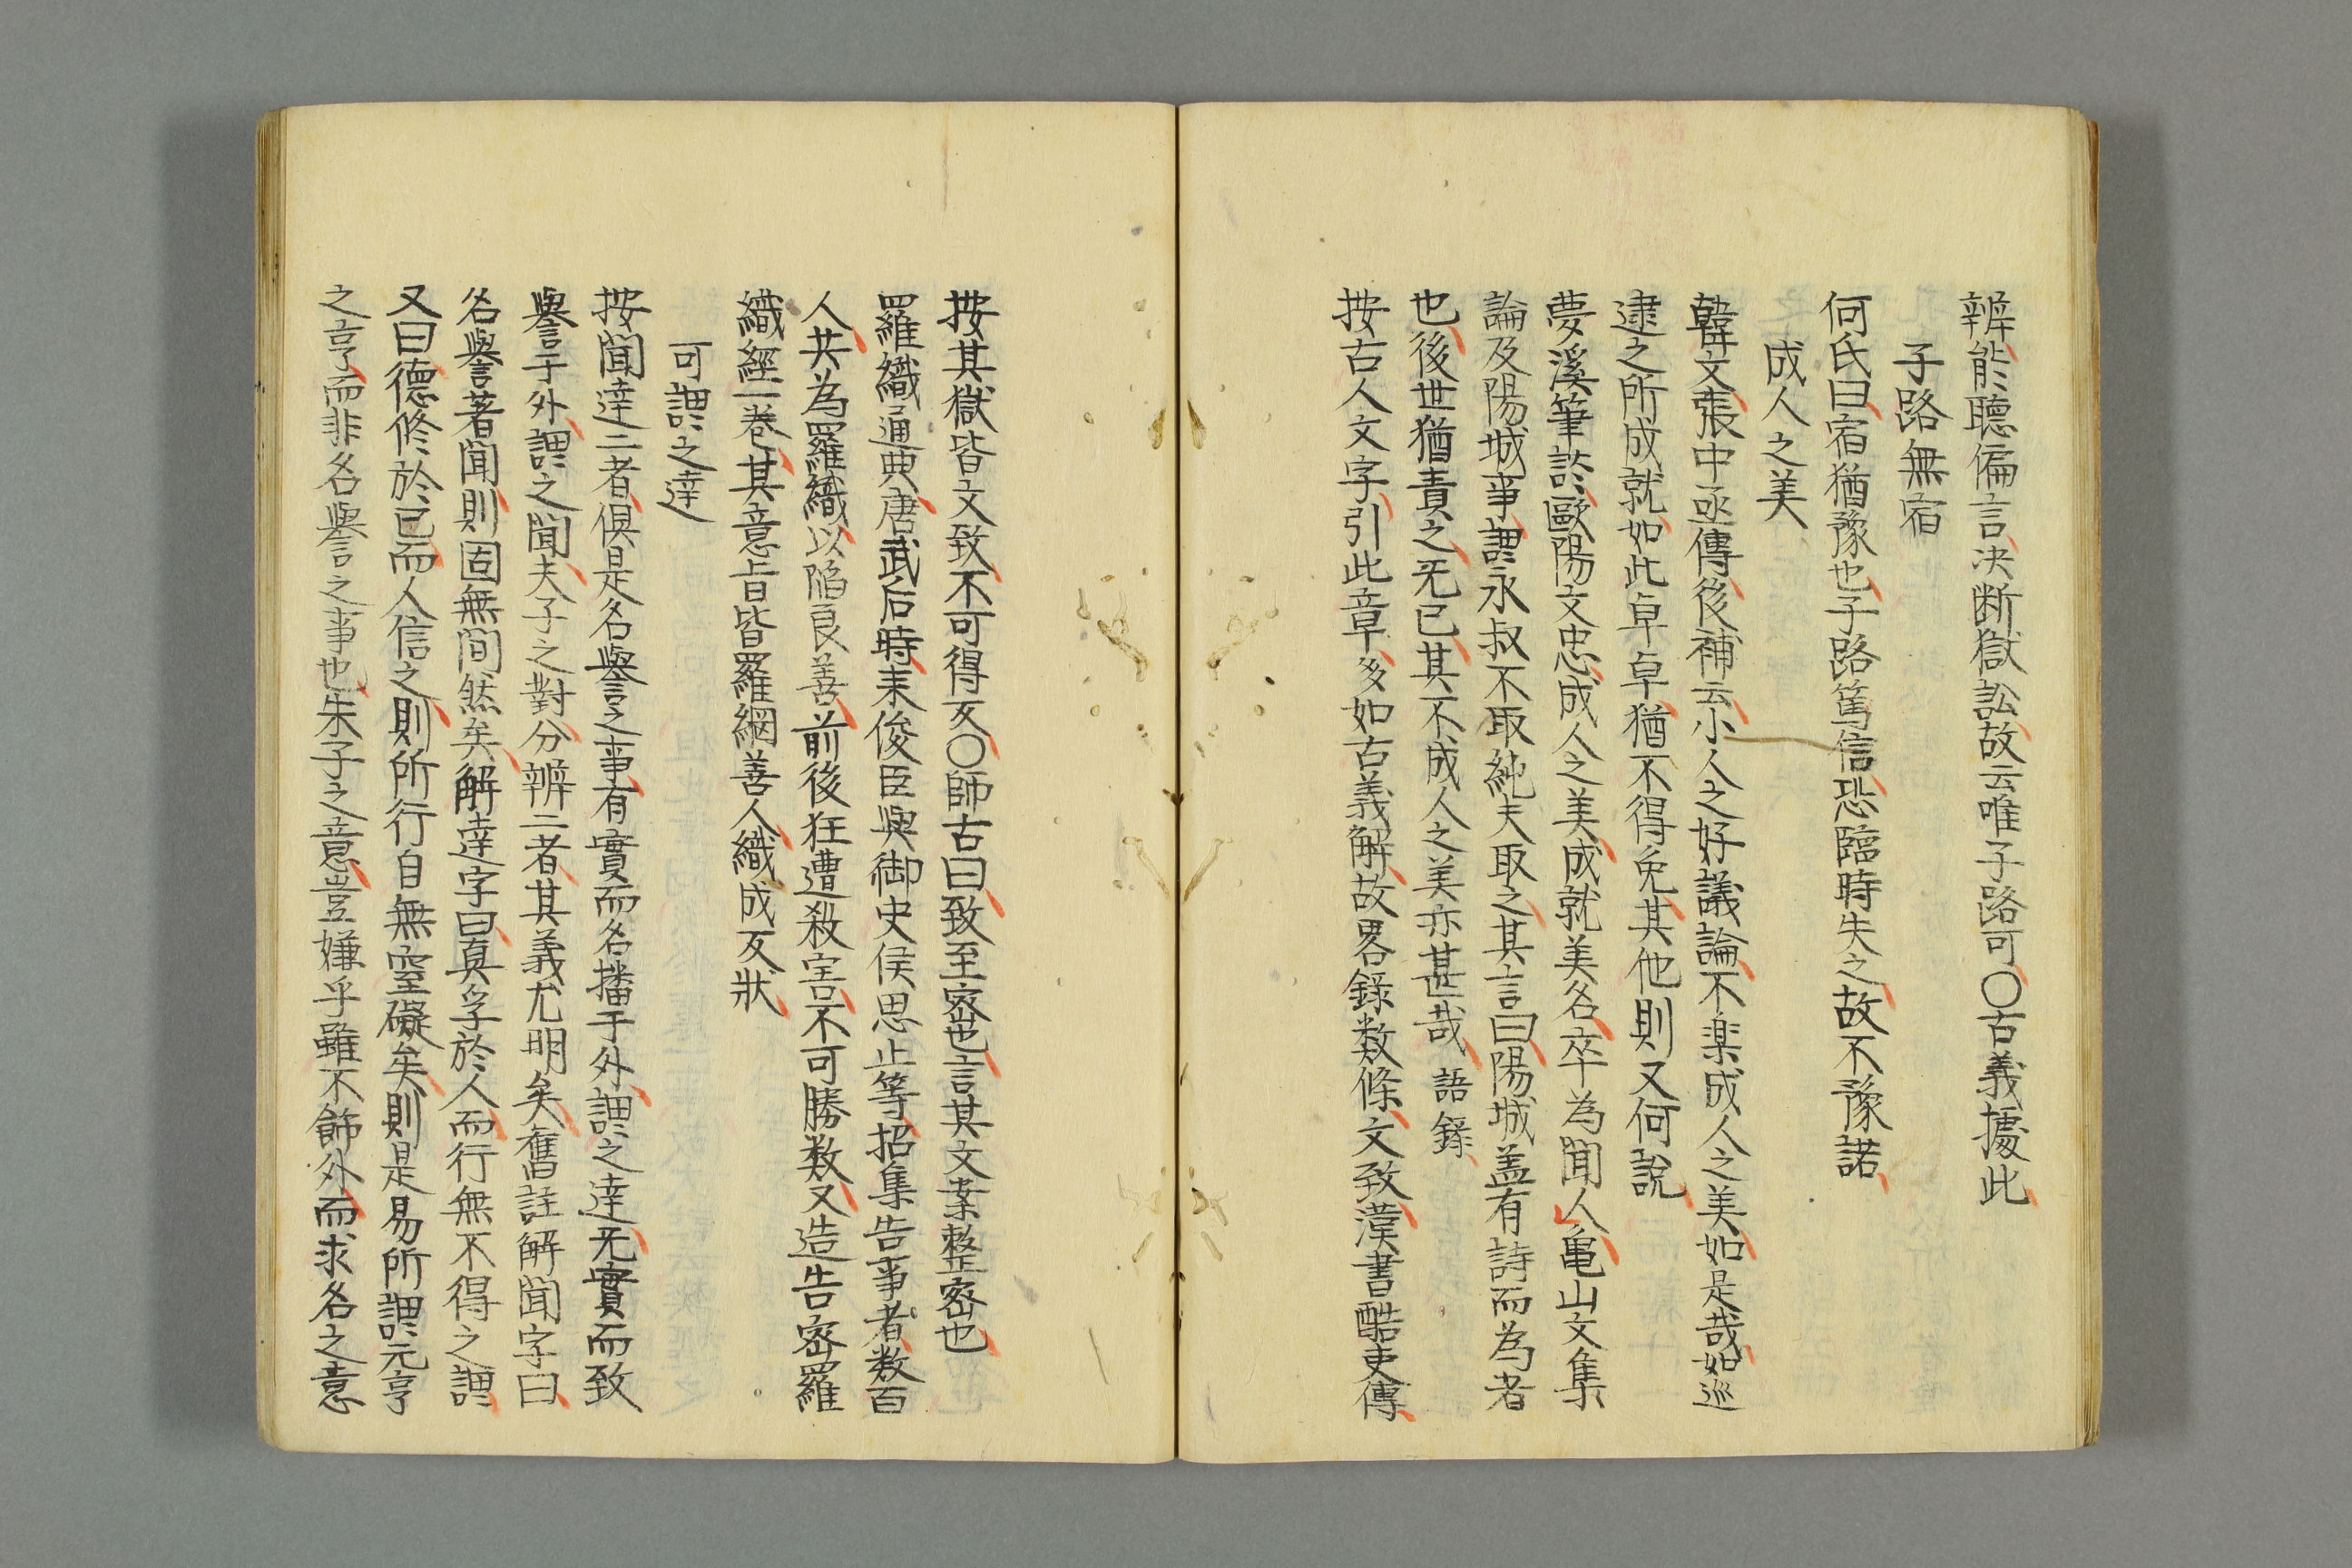 辨能聽偏言决断獄訟故云唯子路可〇古義據此
子路無宿
何氏曰宿猶豫也子路篤信恐臨時失之故不豫諾
成人之美
韓文張中丞傳後補云小人之好議論不楽成人之美如是哉如巡
逮之所成就如此卓卓猶不得免其他則又何說
夢溪筆談歐陽文忠成人之美成就美名卒為聞人亀山文集
論及陽城事謂永叔不取純夫取之其言曰陽城盖有詩而為者
也後世猶責之无已其不成人之美亦甚哉 語録
按古人文字引此章多如古義解故畧錄数條文致漢書酷吏傳
按其獄皆文致不可得反〇師古曰致至密也言其文案整密也
羅織通典唐武后時来俊臣與御史侯思止等招集告事者数百
人共為羅織以陷良善前後狂遭殺害不可勝数又造告密羅
織經一巻其意旨皆羅網善人織成反狀
可謂之達
按聞達二者俱是名譽之事有實而名播于外謂之達无實而致
譽于外謂之聞夫子之對分辨二者其義尤明矣舊註解聞字曰
名譽著聞則固無間然矣解達字曰真孚於人而行無不得之謂
又曰德修於己而人信之則所行自無窒礙矣則是易所謂元亨
之亨而非名譽之事也朱子之意豈嫌乎雖不飾外而求名之意